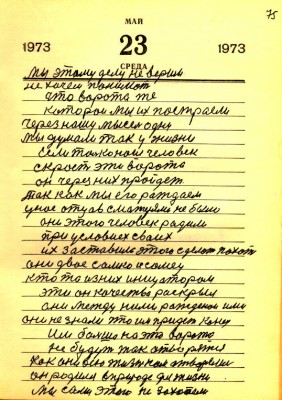 75
МАЙ
1973 23 1973
СРЕДА
Мы этому делу не верим
не хочем понимат
что ворота те
которои мы их построеи
Через нашу мысел одну
мы думали так у жизни
если таконой человек
скроет эти ворота
он через них пройдет
так как мы его раждаем
у нас отца с матирю не было
они этого человек радили
при условиех своих
их заставило этого сделат похот
они двое самко и самец
кто то из них инициатором
эти он качества раскрыл
они между ними рожденои ими
они не знали что им придет конец
Им болшо на это ворота
не будут так отворятся
как они были отворены
он родился в природе для жизни
мы сами этого не захотели